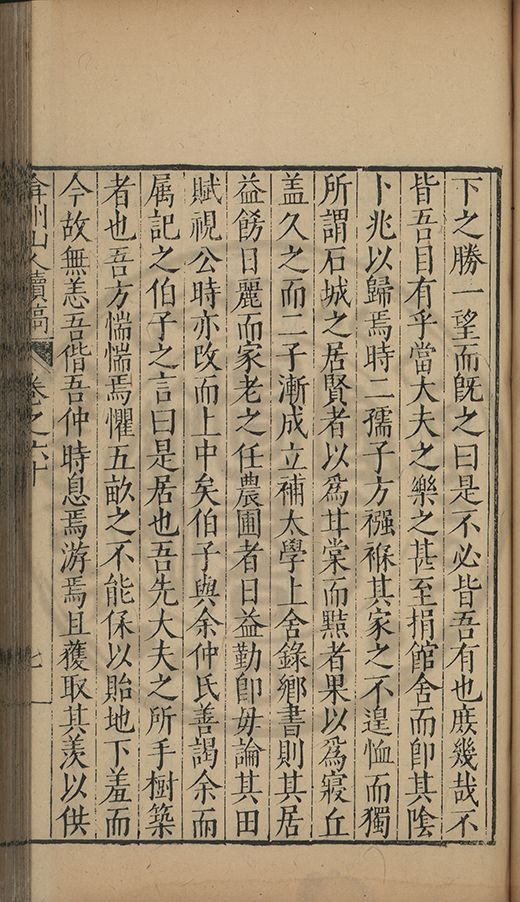 下之勝一望而旣之曰是不必皆吾有也庻幾哉不
皆吾目有乎當大夫之樂之甚至捐館舍而卽其陰
卜兆以歸焉時二孺子方襁褓其家之不遑恤而獨
所謂石城之居賢者以爲甘棠而黠者果以爲寢丘
盖久之而二子漸成立補太學上舍錄鄉書則其居
益餝日麗而家老之任農圃者日益勤卽毋論其田
賦視公時亦攺而上中矣伯子與余仲氏善謁余而
屬記之伯子之言曰是居也吾先大夫之所手樹築
者也吾方惴惴焉懼五畝之不能保以貽地下羞而
今故無恙吾偕吾仲時息焉游焉且獲取其羡以供
弇州山人續稿
卷之六十
七